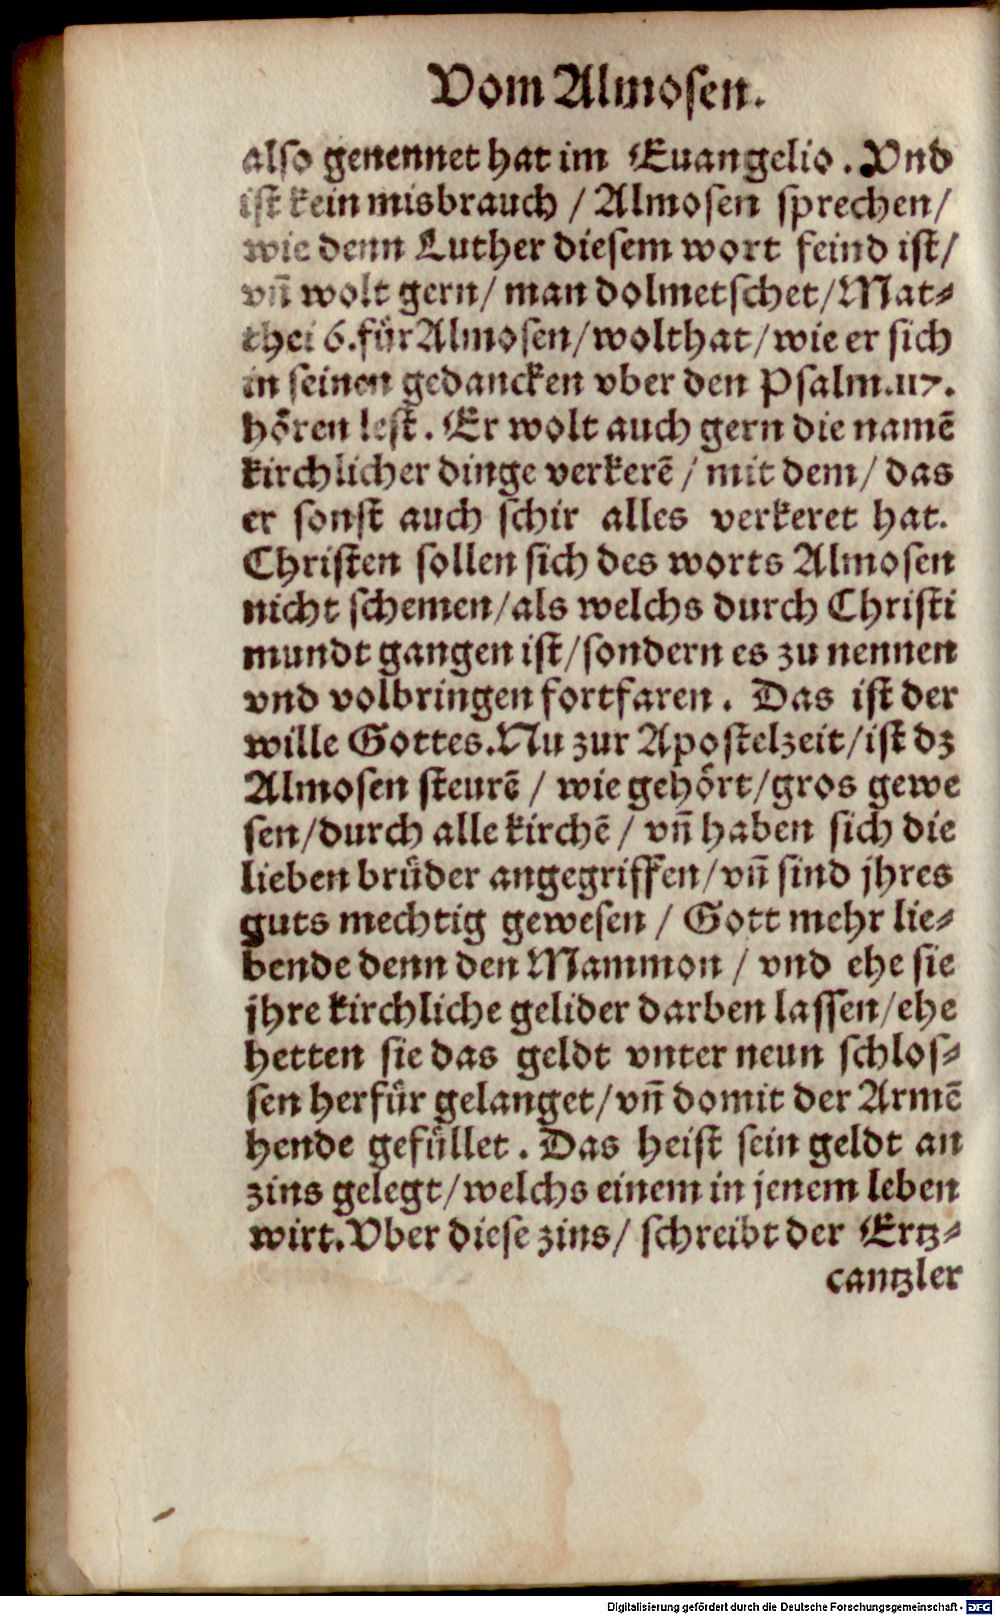 Vom Almosen.
also genennet hat im Euangelio. Vnd
ist kein misbrauch / Almosen sprechen/
wie denn Luther diesem wort feind ist/
vñ wolt gern/ man dolmetschet/ Mat⸗
thei 6. für Almosen/ wolthat/ wie er sich
in seinen gedancken vber den Psalm. 117.
hören lest. Er wolt auch gern die namẽ
kirchlicher dinge verkerẽ / mit dem/ das
er sonst auch schir alles verkeret hat.
Christen sollen sich des worts Almosen
nicht schemen/ als welchs durch Christi
mundt gangen ist/ sondern es zu nennen
vnd volbringen fortfaren. Das ist der
wille Gottes. Nu zur Apostelzeit/ ist dz
Almosen steurẽ / wie gehört/ gros gewe
sen/ durch alle kirchẽ / vñ haben sich die
lieben brüder angegriffen/ vñ sind jhres
guts mechtig gewesen / Gott mehr lie⸗
bende denn den Mammon / vnd ehe sie
jhre kirchliche gelider darben lassen/ ehe
hetten sie das geldt vnter neun schlos⸗
sen herfür gelanget/ vñ domit der Armẽ
hende gefüllet. Das heist sein geldt an
zins gelegt/ welchs einem in jenem leben
wirt. Vber diese zins/ schreibt der Ertz⸗
cantzler
Digitalisierung gefördert durch die Deutsche Forschungsgemeinschaft - DFG